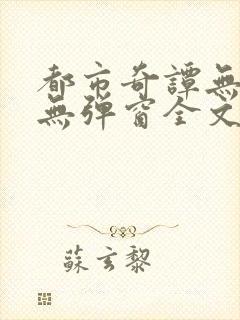 都市奇譚無
無彈窗全文
蘇玄黎